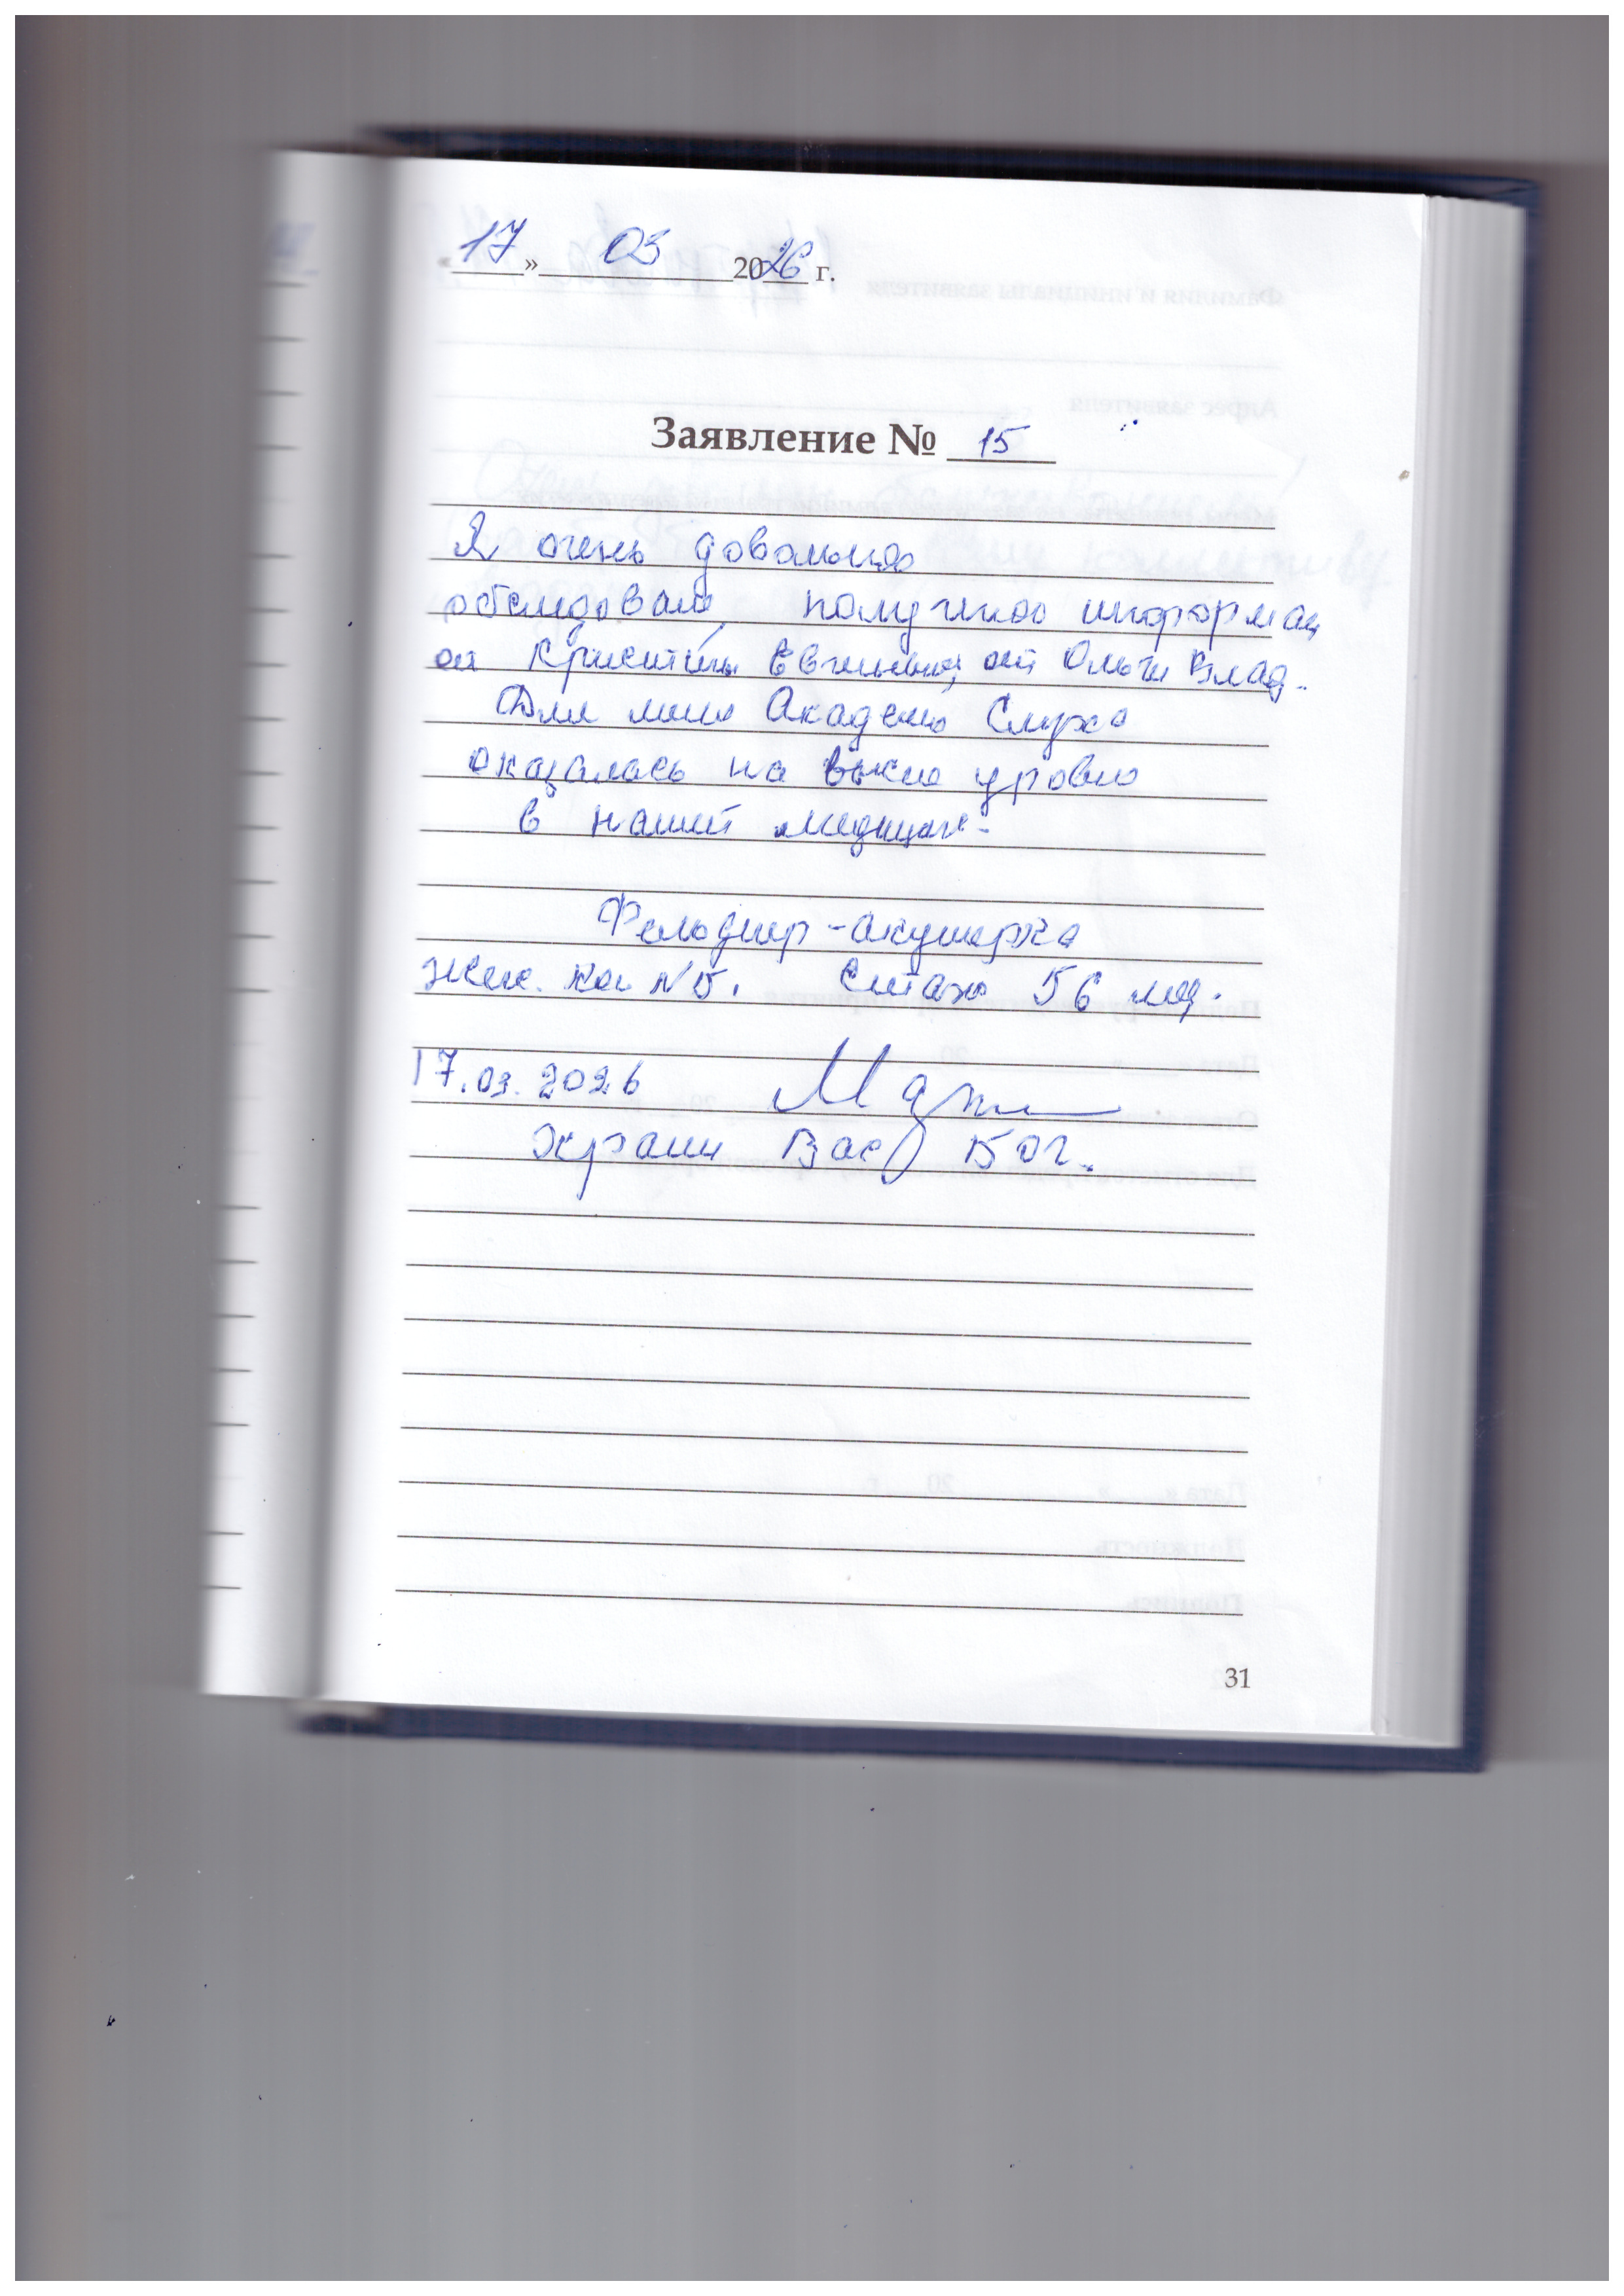 «17» 03 2026 г.
Заявление № 15
Я очень довольна
обследован, получила информац
от Кристины Евгеньевны, от Ольги Влад.
Для меня Академия Слуха
оказалась на высше уровне
в нашей медицине.
Фельдшер-акушерка
жен. кон №5. Стаж 56 лет.
17.03.2026
Храни Вас Бог.
31